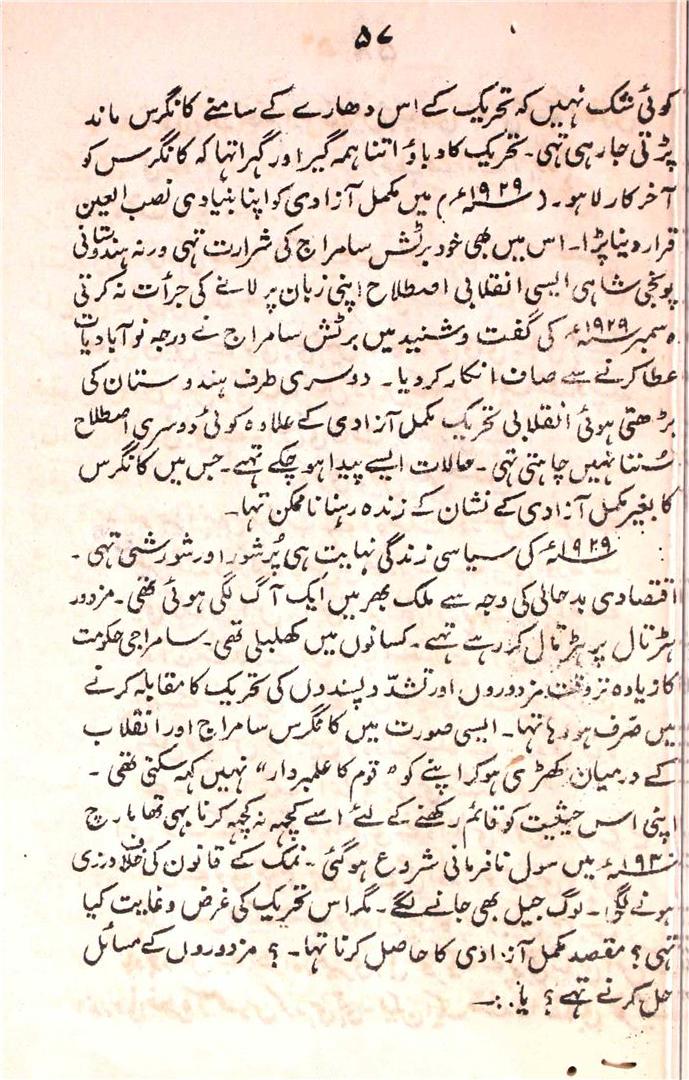 ۵۷
کوئی شک نہیں کہ تحریک کے اس دھارے کے سامنے کانگرس ماند
پڑتی جا رہی تہی۔ تحریک کا دباؤ اتنا ہمہ گیر اور گہرا تہا کہ کانگرس کو
آخرکار لاہور (۱۹۲۹ء) میں مکمل آزادی کو اپنا بنیادی نصب العین
قرار دینا پڑا۔ اس میں بھی خود برٹش سامراج کی شرارت تہی ورنہ ہندوستانی
پونجی شاہی ایسی انقلابی اصطلاح اپنی زبان پر لانے کی جرأت نہ کرتی
دسمبر ۱۹۲۹ء کی گفت و شنید میں برٹش سامراج نے درجہ نوآبادیات
عطا کرنے سے صاف انکار کر دیا۔ دوسری طرف ہندوستان کی
بڑھتی ہوئی انقلابی تحریک مکمل آزادی کے علاوہ کوئی دوسری اصطلاح
سُننا نہیں چاہتی تہی۔ حالات ایسے پیدا ہو چکے تہے۔ جس میں کانگرس
کا بغیر مکمل آزادی کے نشان کے زندہ رہنا ناممکن تہا۔
۱۹۲۹ء کی سیاسی زندگی نہایت ہی پُر شور اور شورشی تہی۔
اقتصادی بدحالی کی وجہ سے ملک بھر میں ایک آگ لگی ہوئی تھی۔ مزدور
ہڑتال پر ہڑتال کر رہے تہے۔ کسانوں میں کھلبلی تھی۔ سامراجی حکومت
کا زیادہ تر وقت مزدوروں اور تشدّد پسندوں کی تحریک کا مقابلہ کرنے
میں صَرف ہو رہا تہا۔ ایسی صورت میں کانگرس سامراج اور انقلاب
کے درمیان کھڑی ہو کر اپنے کو "قوم کا علمبردار" نہیں کہہ سکتی تھی۔
اپنی اس حیثیت کو قائم رکھنے کے لئے اسے کچہہ نہ کچہہ کرنا ہی تھا مارچ
۱۹۳۰ء میں سول نافرمانی شروع ہو گئی۔ نمک کے قانون کی خلاف ورزی
ہونے لگی۔ لوگ جیل بھی جانے لگے۔ مگر اس تحریک کی غرض و غایت کیا
تہی؟ مقصد مکمل آزادی کا حاصل کرنا تہا۔ ؟ مزدوروں کے مسائل
حل کرنے تہے؟ یا..۔